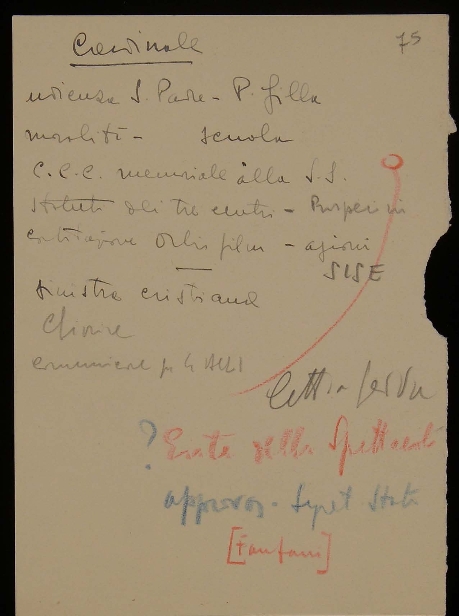 75
Cardinale
udienza S. Padre - P. Gilla
moralità - scuola
C.C.C. memoriale alla S.S.
Statuti dei tre centri - Prosperini
costituzione Orbis film - azioni
SISE
sinistra cristiana
Chiarire
comunicare per le ACLI
Ente dello Spettacolo
?
approvaz. - Segret Stato
[Fanfani]